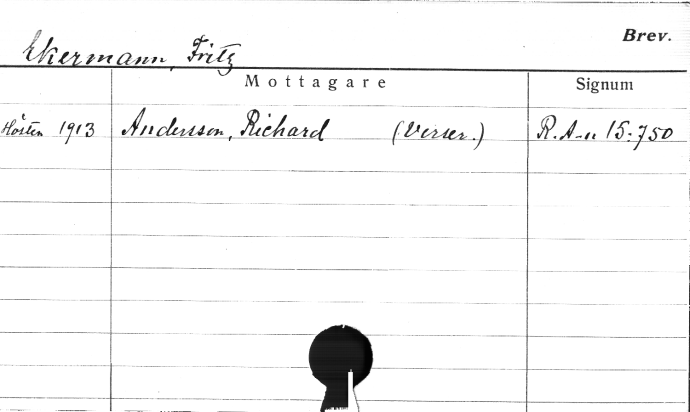 Brev.
Ekermann, Fritz
Mottagare Signum
Hösten 1913 Andersson, Richard (Verser.) R.A-n 15:750